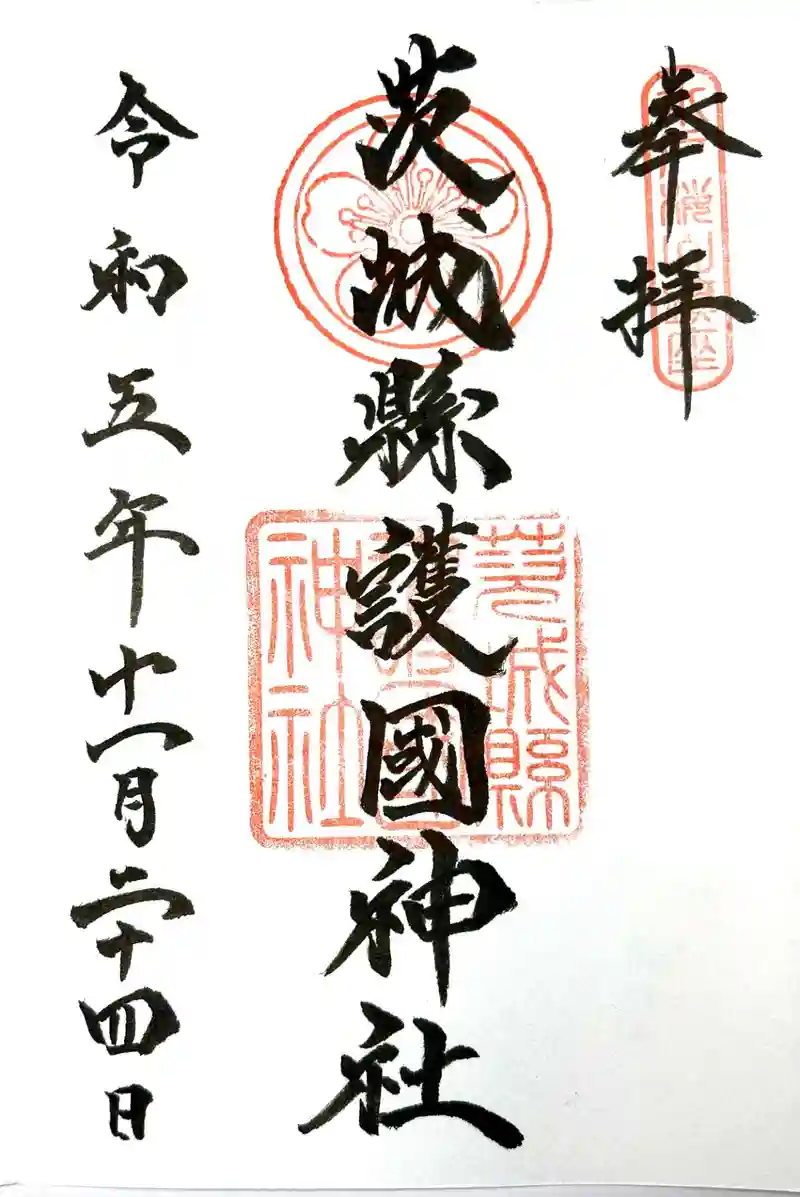 奉拝
茨城縣護國神社
茨城縣
護國
神社
令和五年十一月二十四日